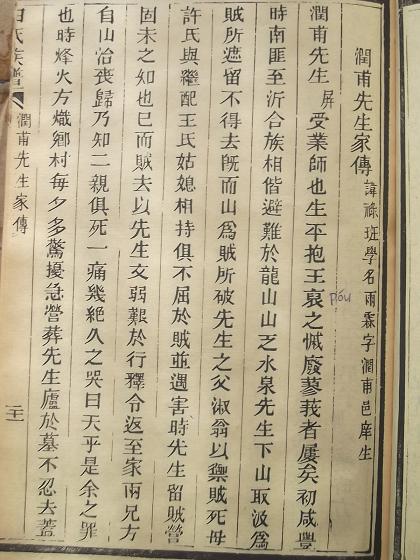 潤甫先生家傳 諱祿班學名雨霖字潤甫邑庠生
潤甫先生屏受業師也生平抱王裒之慽廢蓼莪者屢矣初咸豐
póu
時南匪至沂合族相偕避難於龍山山乏水泉先生下山取汲爲
賊所遮留不得去旣而山爲賊所破先生之父淑翁以禦賊死母
許氏與繼配王氏姑媳相持俱不屈於賊並遇害時先生留賊營
固未之知也已而賊去以先生文弱艱於行釋令返至家兩兄方
自山治喪歸乃知二親俱死一痛幾絕久之哭曰天乎是余之罪
也時烽火方熾鄉村每夕多驚擾急營葬先生廬於墓不忍去蓋
氏族譜
潤甫先生家傳
二十一